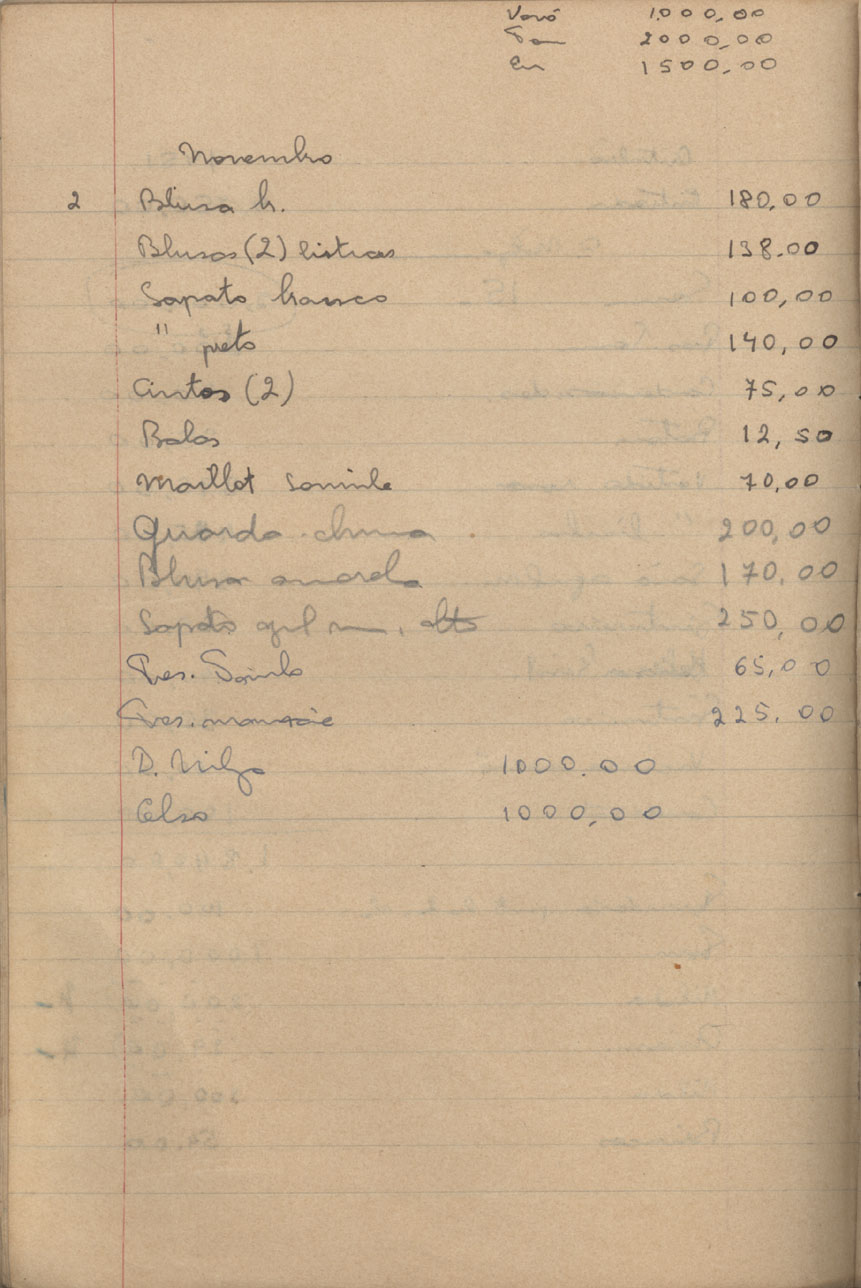 Vovó 1.000,00
2000,00
Eu 1500,00
Novembro
2 Blusa b. 180,00
Blusas (2) listras 138.00
Sapato branco 100,00
" preto 140,00
Cintos (2) 75,00
Balas 12,50
Maillot Soninha 70,00
Guarda-chuva 200,00
Blusa amarela 170.00
Sapato alto 250,00
Pres. 65,00
Pres. mamãe 225.00
D. 1000.00
Celso 1000,00